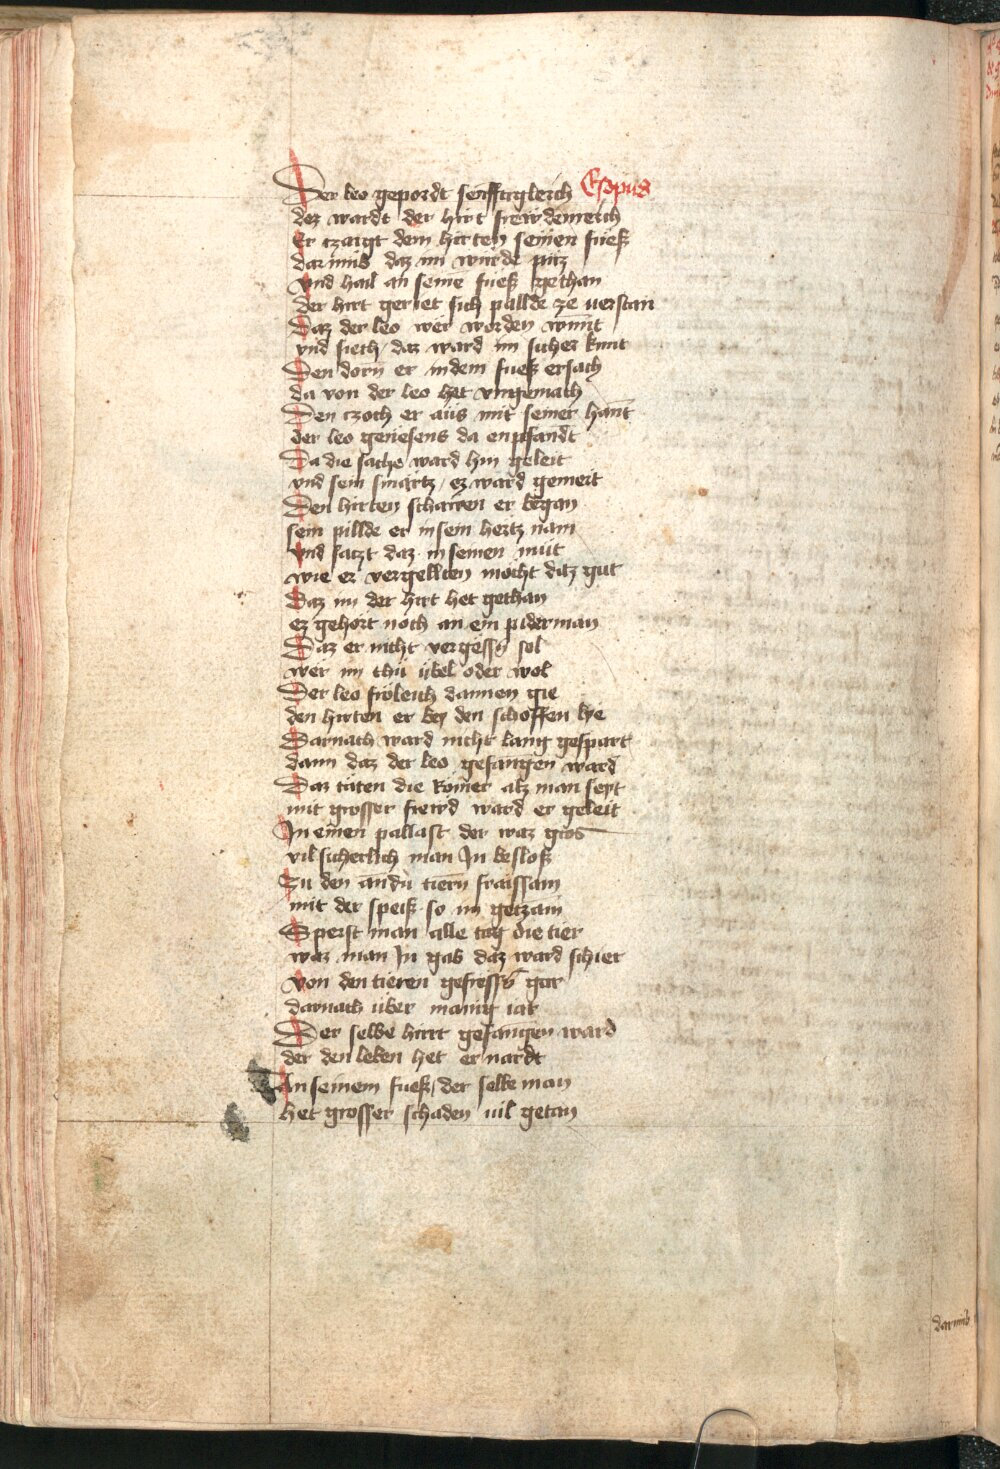 Der leo gepordt senfftigleich Esopus
dez wardt der hirt frewdenreich
Er czaigt dem hirten seinen fuesz
darumb daz im würde püz
vnd hail an seine fuesz gethan
der hirt geriet sich pallde ze uerstan
Daz der leo wer worden wunt
vnd siech / daz ward im sicher kunt
Den dorn er in dem fuesz ersach
da von der leo het vngemach
Den czoch er aus mit seiner hant
der leo geniesens da enpfandt
Da die sache ward hin geleit
vnd sein smartz / ez ward gemeit
Den hirten schawen er began
sein pillde er in sein hertz nam
vnd satzt daz in seinen mut
wie er vergellten mocht ditz gut
Daz im der hirt het gethan
ez gehört noch an ein piderman
Daz er nicht vergessn sol
wer im thu übel oder wol
Der leo fröleich dannen gie
den hirten er bey den schoffen lye
Darnach ward nicht lang gespart
dann daz der leo gefangen ward
Daz täten die Römer alz man seyt
mit grosser frewd ward er geleit
In einen pallast der waz gros
vil sicherlich man In beslosz
Zu den andn tiern fraissam
mit der speisz so im getzam
Sperst man alle tag die tier
waz man In gab daz ward schier
von den tieren gefressn gar
darnach über manig iar
Der selbe hirrt gefangen ward
der den leben het ernardt
An seinem fuesz / der selbe man
het grosser schaden uil getan
darumb